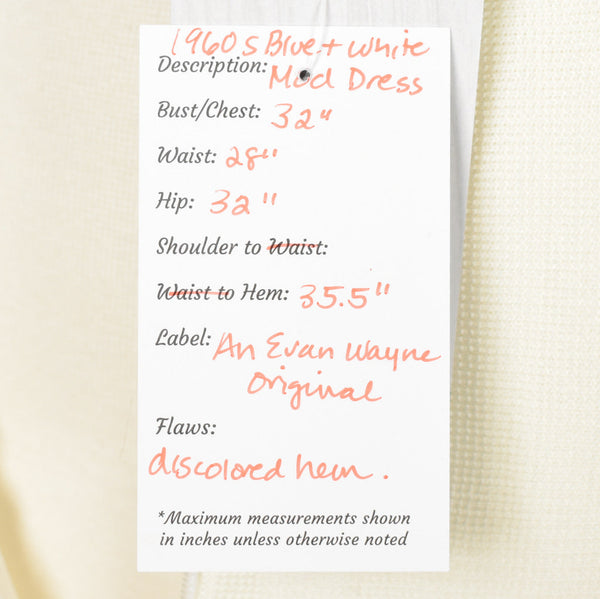 1960s Blue + White
Description: Mod Dress
Bust/Chest: 32"
Waist: 28"
Hip: 32"
Shoulder to Waist:
Waist to Hem: 35.5"
Label: An Evan Wayne
Original
Flaws:
discolored hem.
*Maximum measurements shown
in inches unless otherwise noted